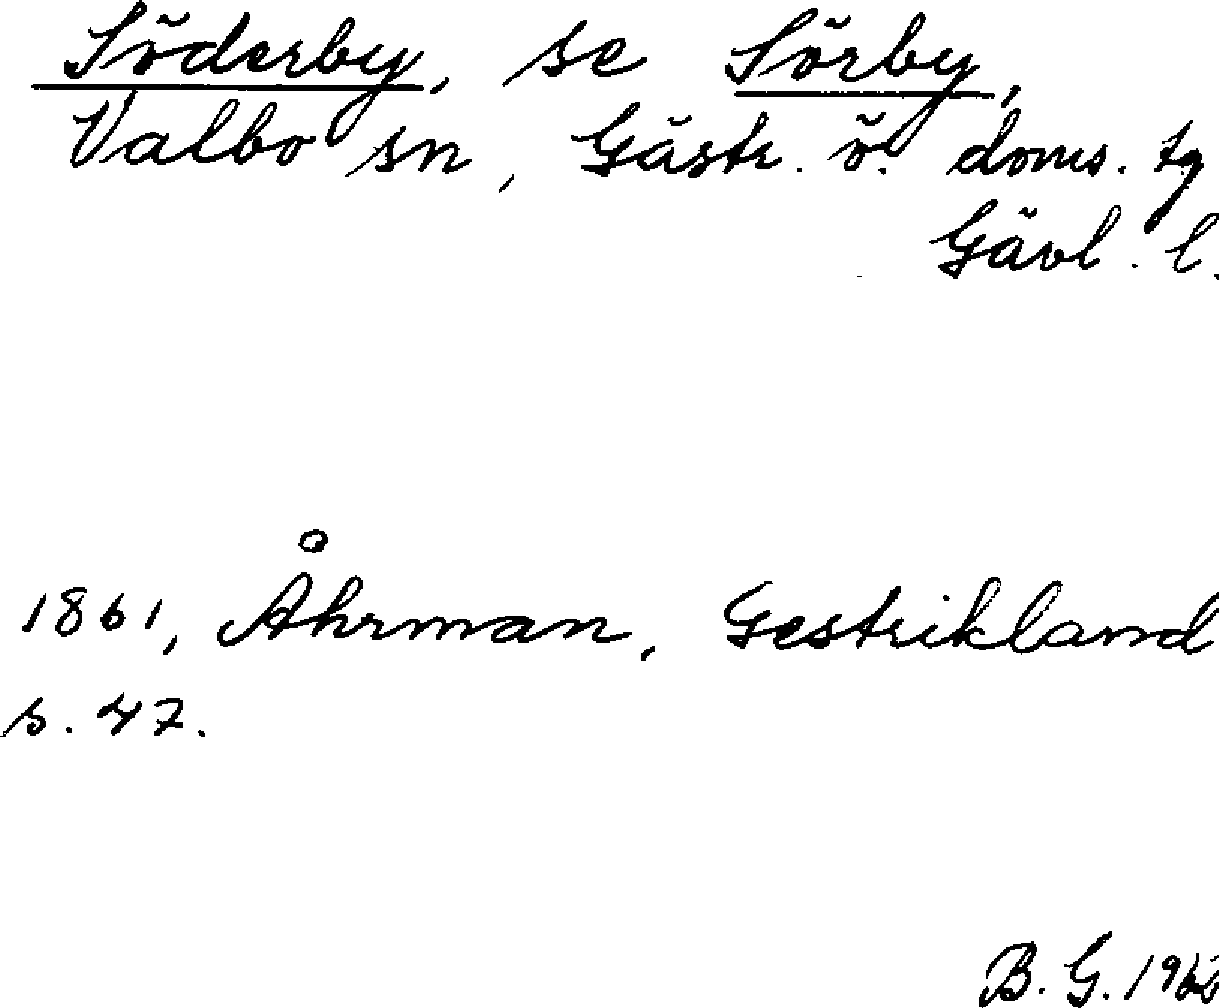 Söderby, se Sörby,
Valbo sn, Gästr. ö. doms. tg
Gävl. l.
1861, Åhrman, Gestrikland
s. 47.
B. G.